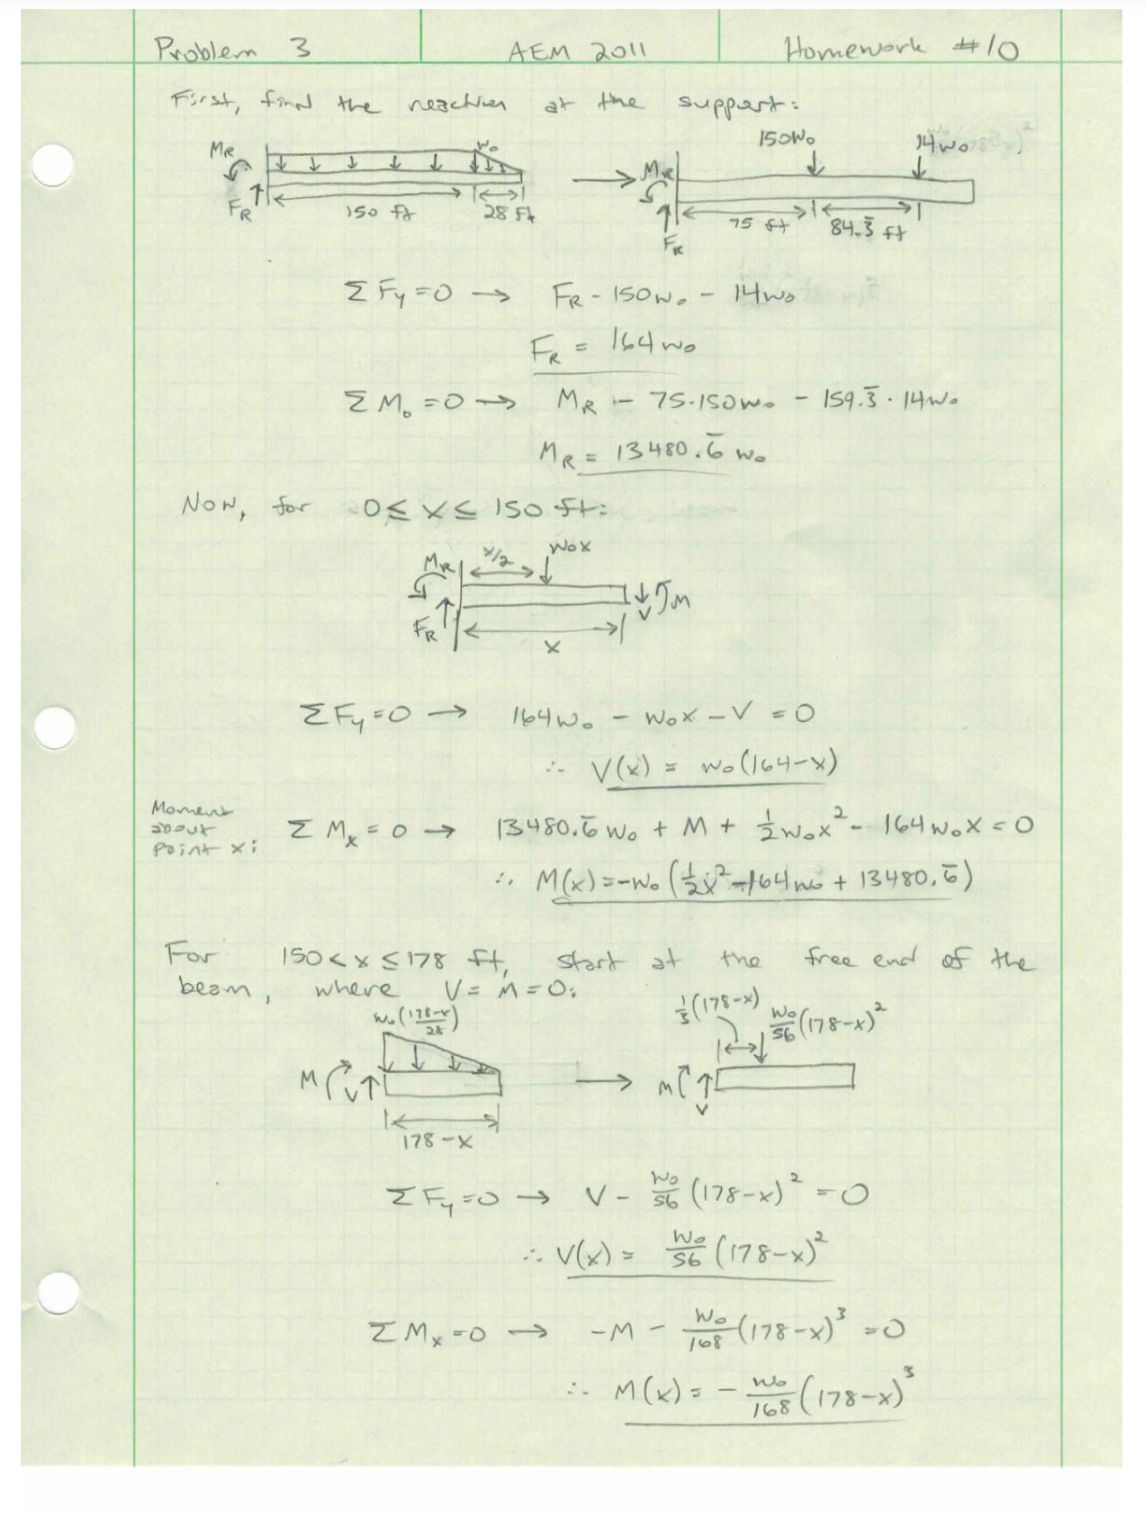 Problem 3 AEM 2011 Homework #10
First, find the reaction at the support:
MR w₀ 150w₀ 14w₀
FR 150 ft 28 ft MR FR 75 ft 84.3̅ ft
ΣFy=0 → FR - 150w₀ - 14w₀
FR = 164w₀
ΣM₀=0 → MR - 75·150w₀ - 159.3̅·14w₀
MR = 13480.6̅ w₀
Now, for 0≤x≤150 ft:
MR x/2 w₀x
FR V M
x
ΣFy=0 → 164w₀ - w₀x - V = 0
∴ V(x) = w₀(164-x)
Moment
about
point x:
ΣMx=0 → 13480.6̅w₀ + M + ½w₀x² - 164w₀x = 0
∴ M(x)=-w₀(½x²-164w₀ + 13480.6̅)
For 150<x≤178 ft, start at the free end of the
beam, where V=M=0:
w₀(178-x / 28) ⅓(178-x) w₀/56(178-x)²
M V M V
178-x
ΣFy=0 → V - w₀/56(178-x)² = 0
∴ V(x) = w₀/56(178-x)²
ΣMx=0 → -M - w₀/168(178-x)³ = 0
∴ M(x) = - w₀/168(178-x)³